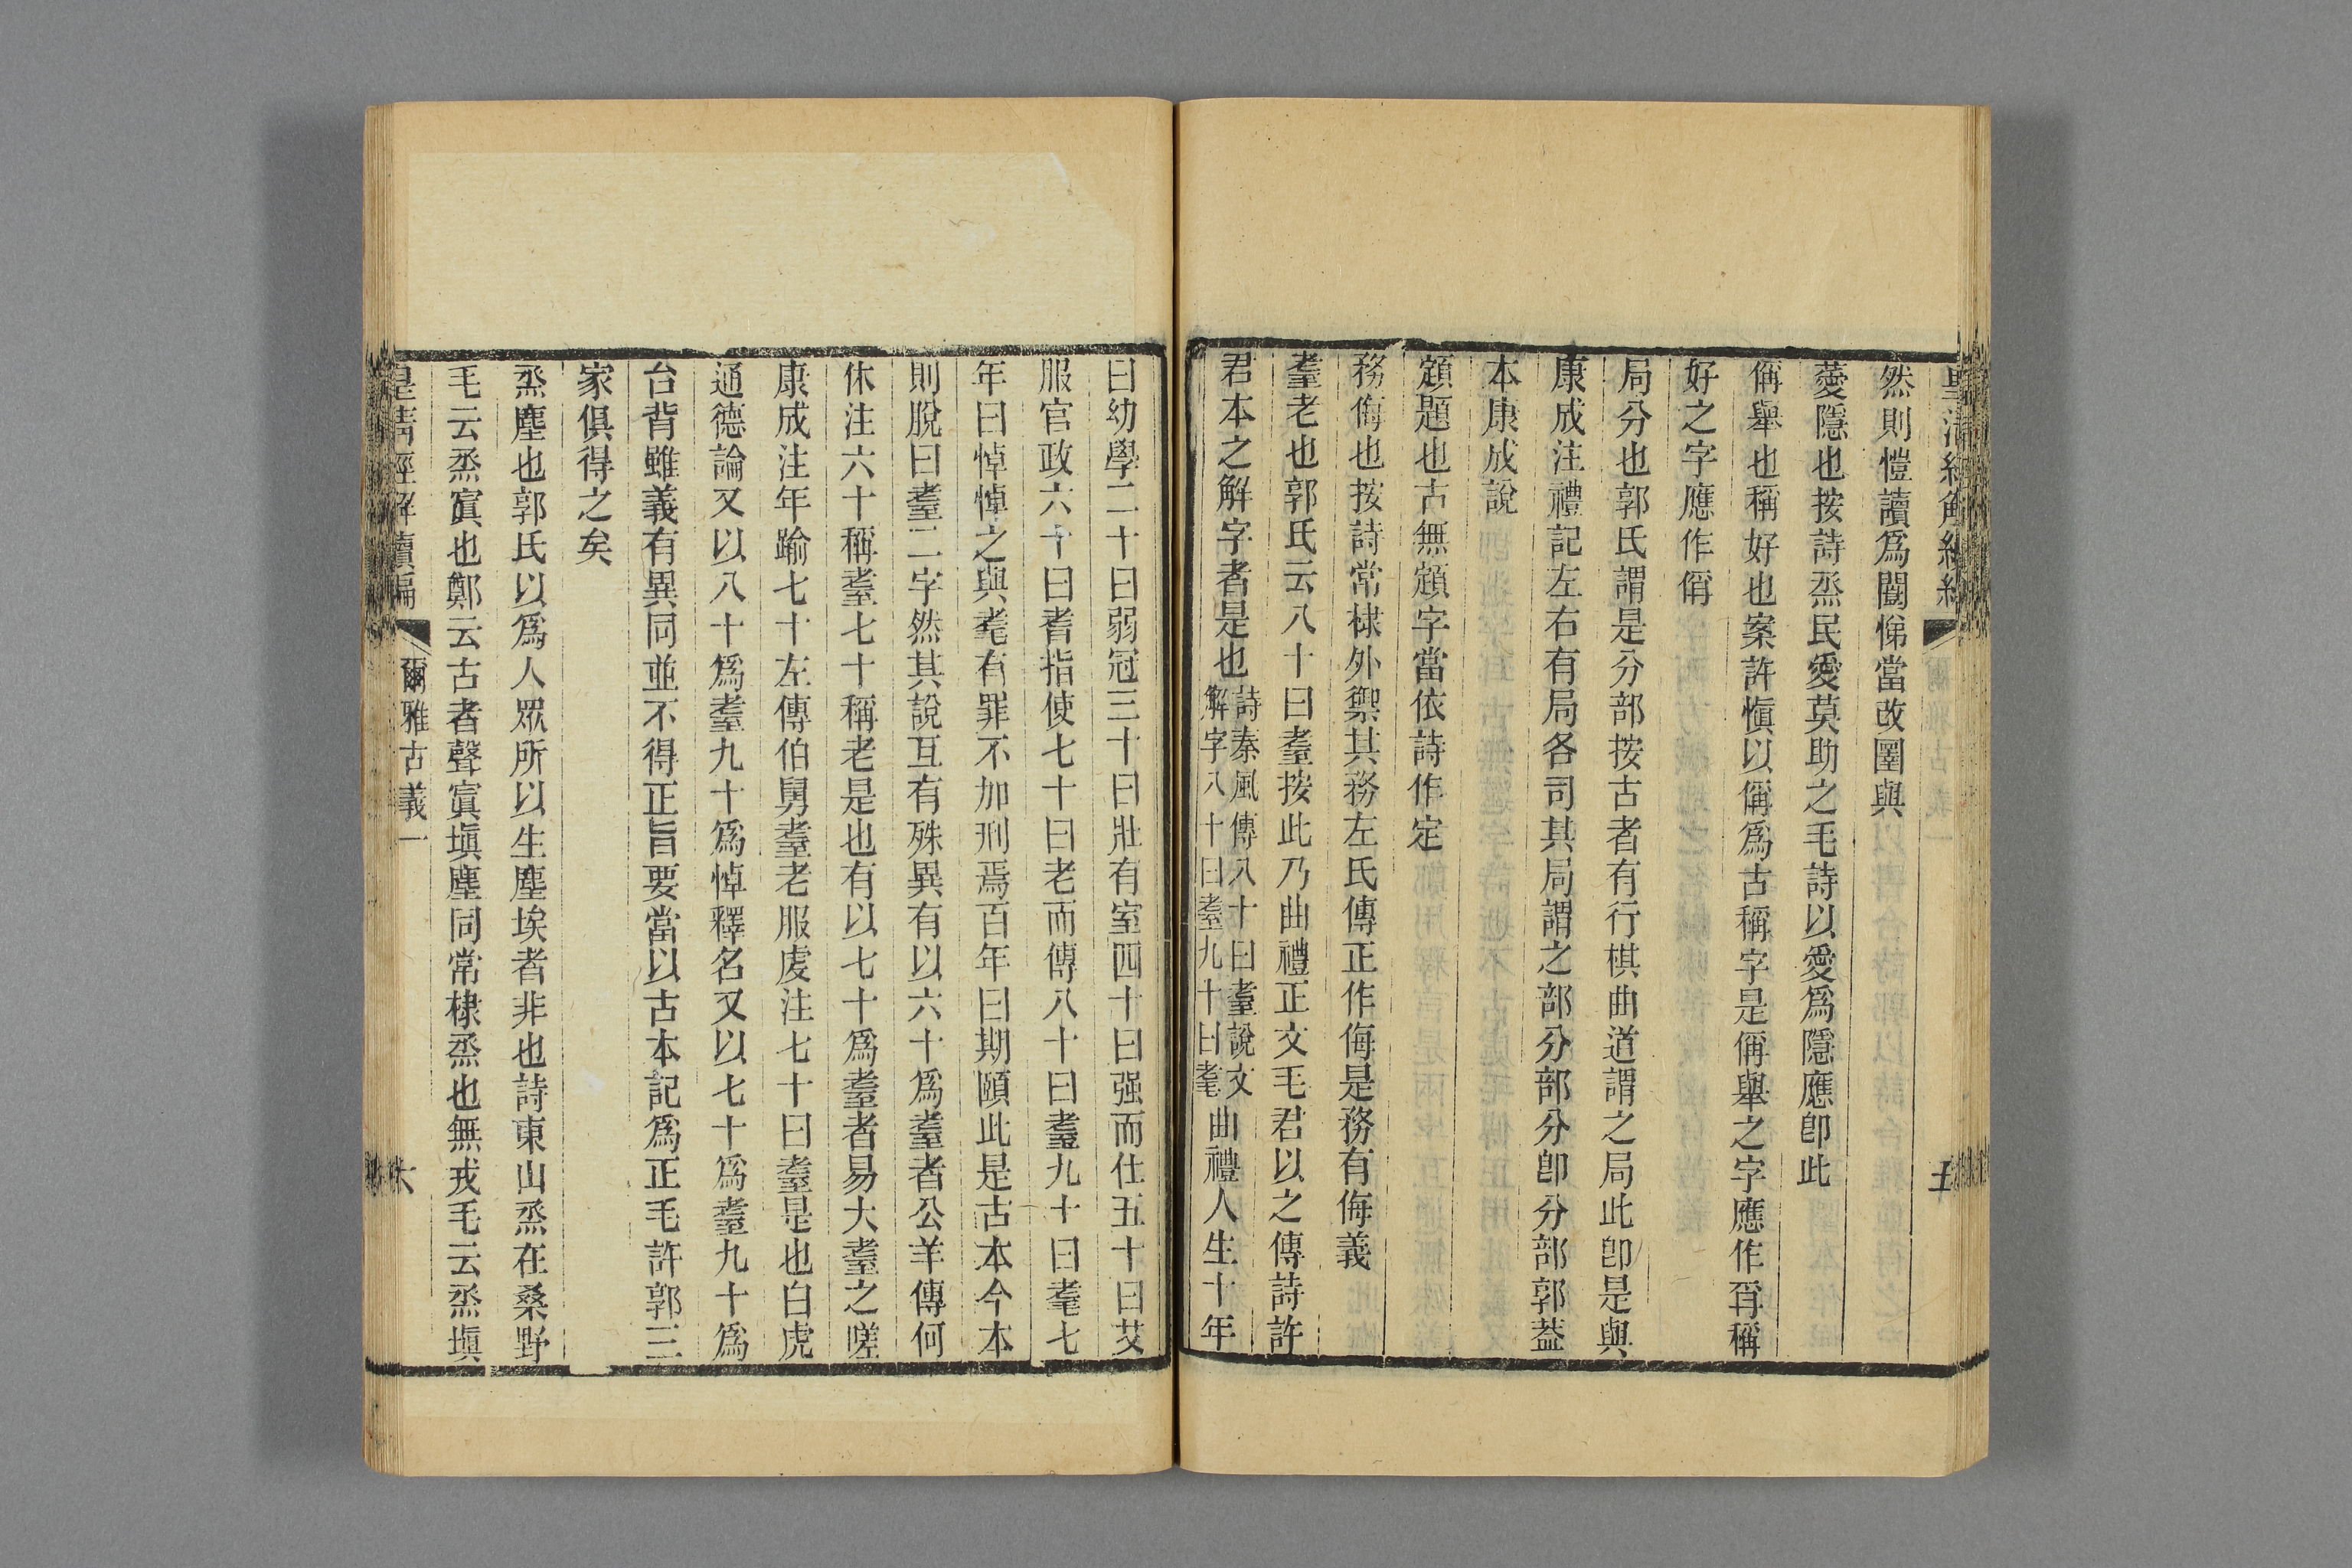 然則愷讀爲闓悌當改圛與
薆隱也按詩烝民愛莫助之毛詩以愛爲隱應卽此
偁舉也稱好也案許愼以偁爲古稱字是偁舉之字應作爯稱
好之字應作偁
局分也郭氏謂是分部按古者有行棋曲道謂之局此卽是與
康成注禮記左右有局各司其局謂之部分部分卽分部郭葢
本康成說
顁題也古無顁字當依詩作定
務侮也按詩常棣外禦其務左氏傳正作侮是務有侮義
耋老也郭氏云八十曰耋按此乃曲禮正文毛君以之傳詩許
君本之解字者是也詩秦風傳八十曰耋說文解字八十曰耋九十曰耄曲禮人生十年
曰幼學二十曰弱冠三十曰壯有室四十曰强而仕五十曰艾
服官政六十曰耆指使七十曰老而傳八十曰耋九十曰耄七
年曰悼悼之與耄有罪不加刑焉百年曰期頤此是古本今本
則脫曰耋二字然其說互有殊異有以六十爲耋者公羊傳何
休注六十稱耋七十稱老是也有以七十爲耋者易大耋之嗟
康成注年踰七十左傳伯舅耋老服虔注七十曰耋是也白虎
通德論又以八十爲耋九十爲悼釋名又以七十爲耋九十爲
台背雖義有異同並不得正旨要當以古本記爲正毛許郭三
家俱得之矣
烝塵也郭氏以爲人眾所以生塵埃者非也詩東山烝在桑野
毛云烝窴也鄭云古者聲窴塡塵同常棣烝也無戎毛云烝塡
皇清經解續編
爾雅古義一
六